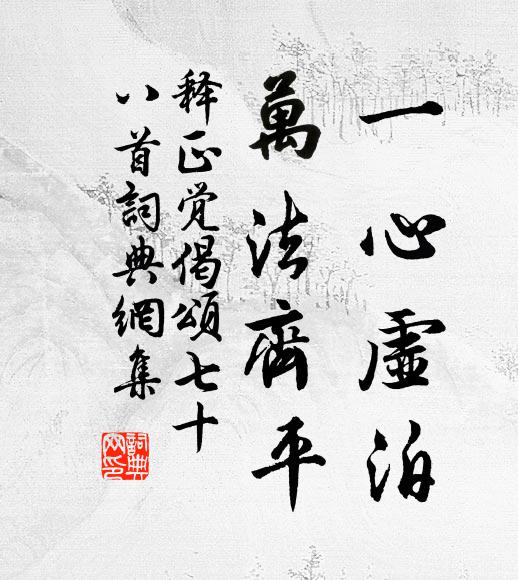 一心虛泊
萬法齊平
释正觉偈頌七十
八首詞典網集
詞典網印